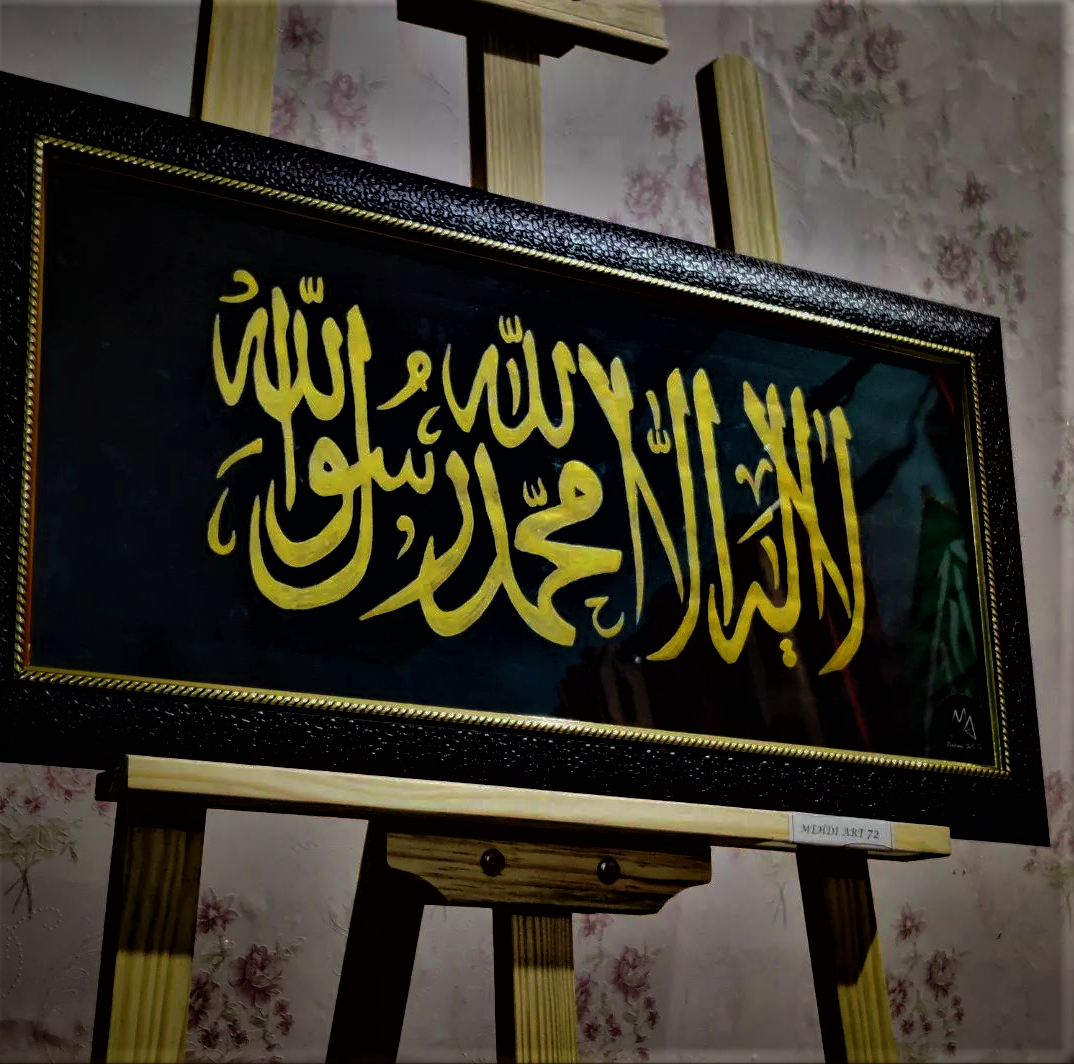 لا إله إلا الله محمد رسول الله
MA
MEHDI ART 72